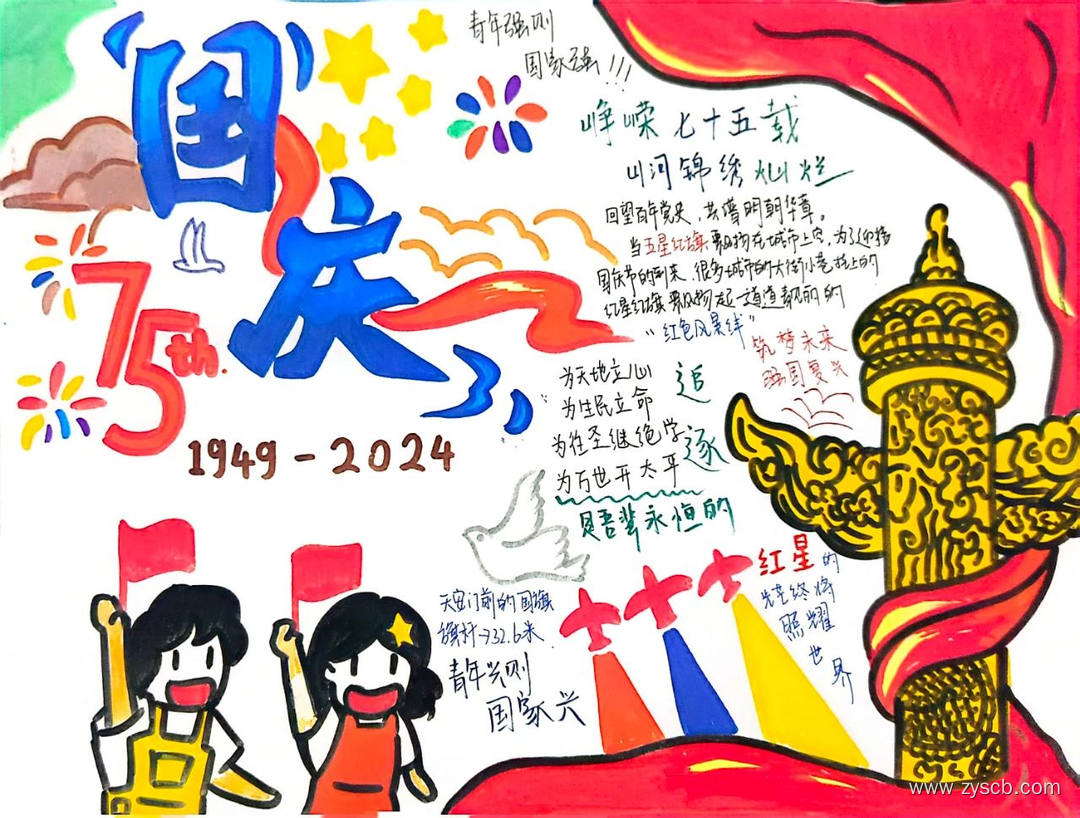 国庆
75th.
1949-2024
青年强则
国家强!!!
峥嵘七十五载
山河锦绣灿烂
回望百年党史,共谱明朝华章。
当五星红旗飘扬在城市上空,为了迎接
国庆节的到来,很多城市的大街小巷挂上的
红星红旗飘扬起一道道靓丽的
“红色风景线”
筑梦未来
强国复兴
为天地立心
为生民立命
为往圣继绝学
为万世开太平
追逐
是吾辈永恒的
红星的
光芒终将
照耀
世界
天安门前的国旗
旗杆→32.6米
青年兴则
国家兴
www.zyscb.com